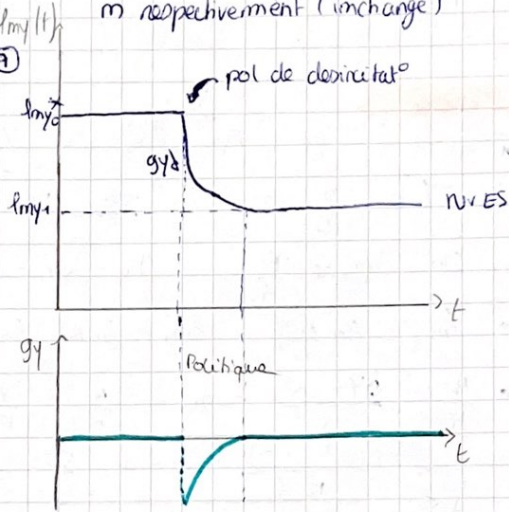 m respectivement (inchangé)
lmy(t)
7
pol de desincitat°
lmy*o
gy↓
lmy1
Nv ES
t
gy
Politique
t